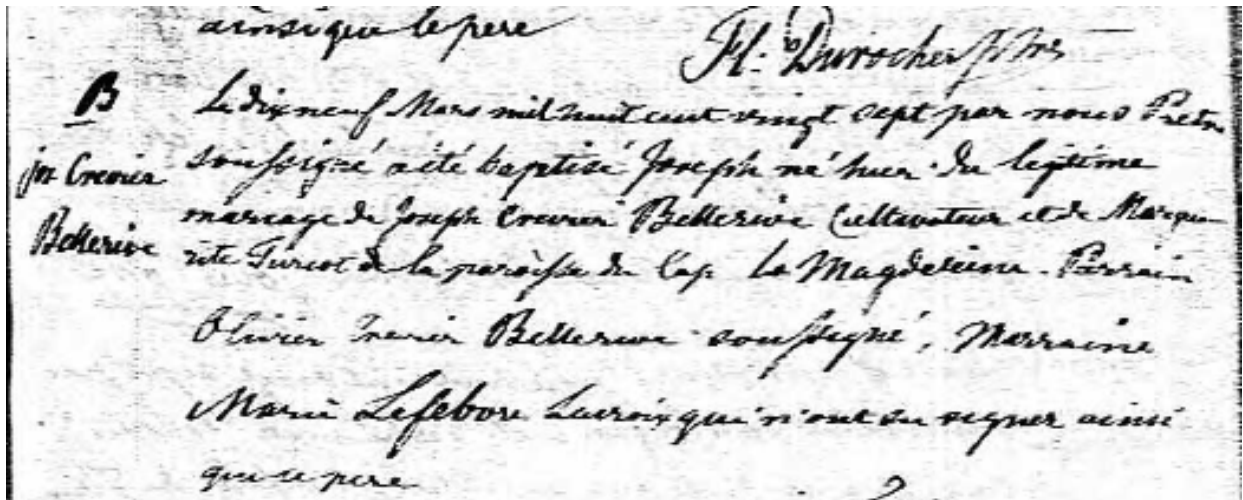 ainsi que le pere
Fl: Durocher Ptre
B
Le dix neuf Mars mil huit cent vingt sept par nous Pretre
jos Crevier
soussigné a été baptisé Joseph né hier du legitime
mariage de Joseph Crevier Bellerive Cultivateur et de Margue-
Bellerive
rite Turcot de la paroisse du Cap la Magdeleine. Parrain
Olivier Crevier Bellerive soussigné, Marraine
Marie Lefebvre Lacroix qui n'ont su signer ainsi
que le pere